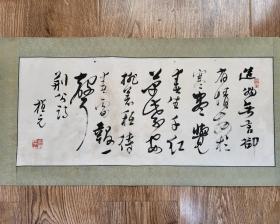 造物無言卻
有情每於
寒盡覺
春生千紅
萬紫安
排著祗待
雷
一
聲
植元